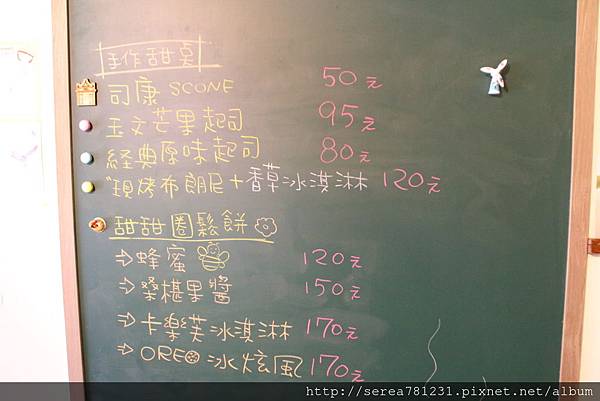 手作甜桌
司康 SCONE 50元
玉文芒果起司 95元
経典原味起司 80元
"現烤布朗尼+香草冰淇淋 120元
甜甜圈鬆餅
⇒蜂蜜 120元
⇒桑椹果醬 150元
⇒卡樂芙冰淇淋 170元
⇒OREO冰炫風 170元
http://serea781231.pixnet.net/album